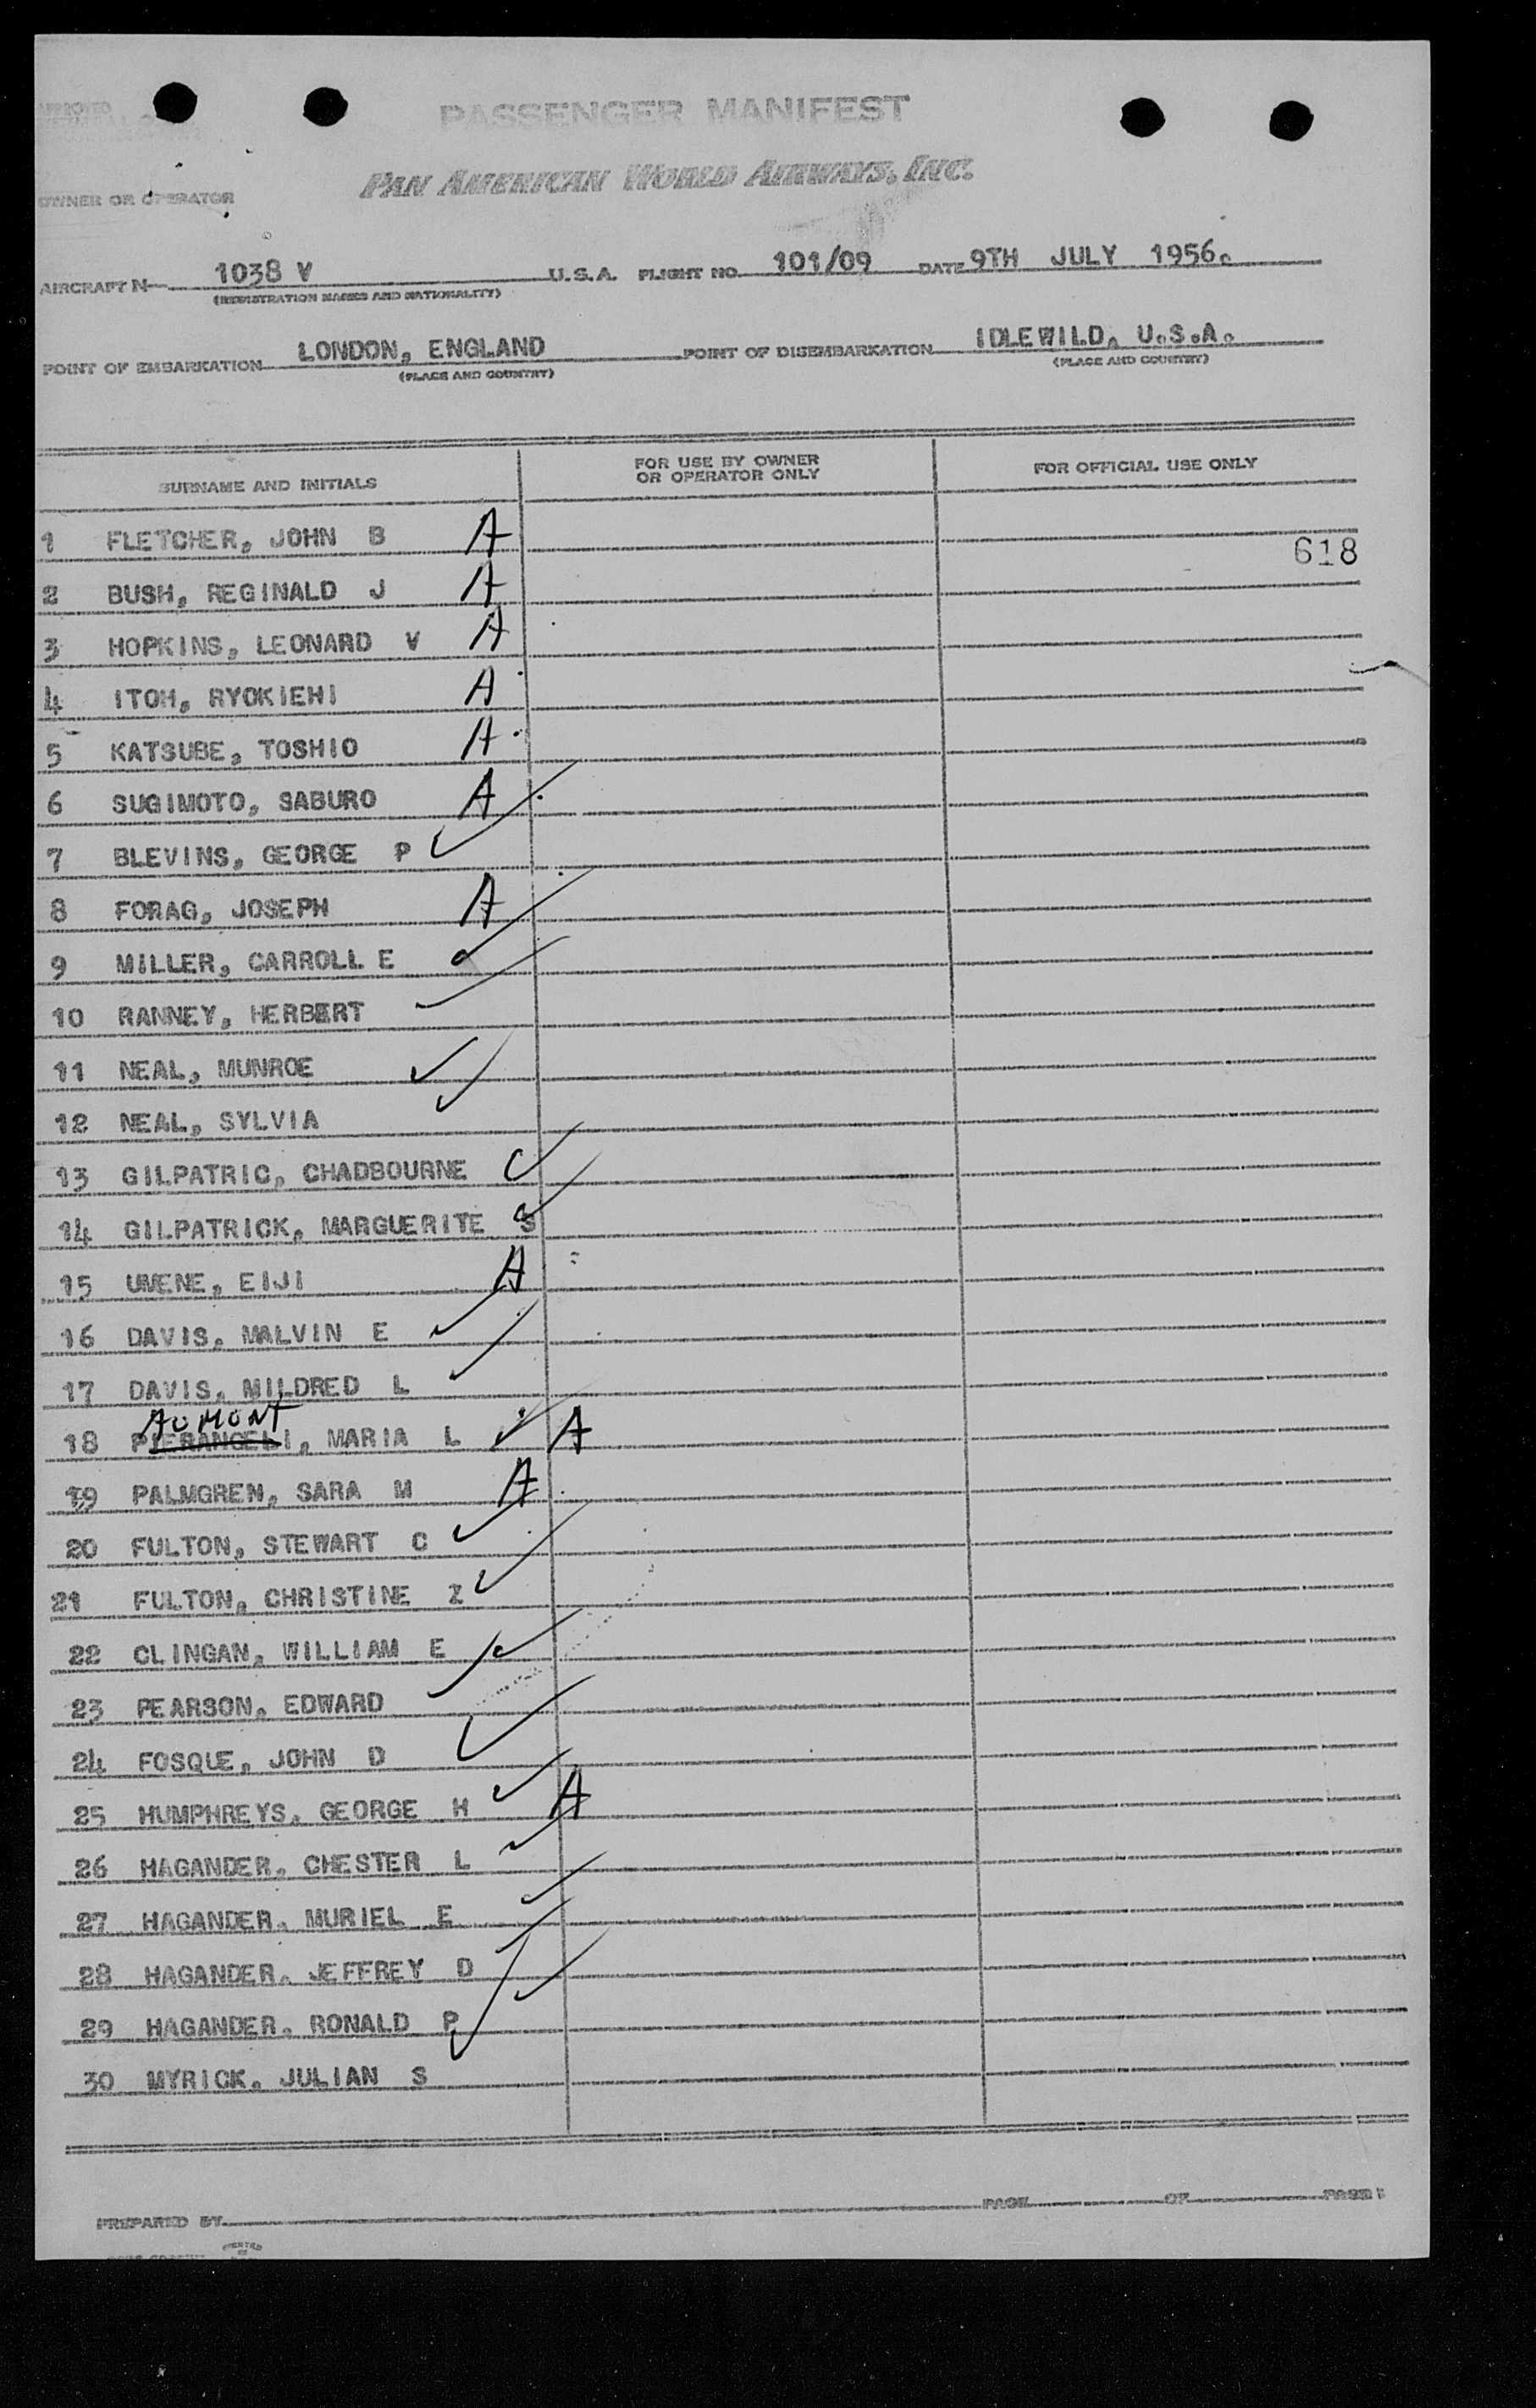 APPROVED
PASSENGER MANIFEST
PAN AMERICAN WORLD AIRWAYS, INC.
OWNER OR OPERATOR
AIRCRAFT N- 1038 V U.S.A. FLIGHT NO. 101/09 DATE 9TH JULY 1956.
(REGISTRATION MARKS AND NATIONALITY)
POINT OF EMBARKATION LONDON, ENGLAND POINT OF DISEMBARKATION IDLEWILD, U.S.A.
(PLACE AND COUNTRY) (PLACE AND COUNTRY)
SURNAME AND INITIALS FOR USE BY OWNER OR OPERATOR ONLY FOR OFFICIAL USE ONLY
1 FLETCHER, JOHN B A
618
2 BUSH, REGINALD J A
3 HOPKINS, LEONARD V A
4 ITOH, RYOKIEHI A
5 KATSUBE, TOSHIO A
6 SUGIMOTO, SABURO A
7 BLEVINS, GEORGE P ✓
8 FORAG, JOSEPH A
9 MILLER, CARROLL E ✓
10 RANNEY, HERBERT ✓
11 NEAL, MUNROE ✓
12 NEAL, SYLVIA ✓
13 GILPATRIC, CHADBOURNE ✓
14 GILPATRICK, MARGUERITE S ✓
15 UMENE, EIJI A
16 DAVIS, MALVIN E ✓
17 DAVIS, MILDRED L ✓
AUMONT
18 PIERANGELI, MARIA L ✓ A
19 PALMGREN, SARA M A
20 FULTON, STEWART C ✓
21 FULTON, CHRISTINE Z ✓
22 CLINGAN, WILLIAM E ✓
23 PEARSON, EDWARD ✓
24 FOSQUE, JOHN D ✓
25 HUMPHREYS, GEORGE H ✓ A
26 HAGANDER, CHESTER L ✓
27 HAGANDER, MURIEL E ✓
28 HAGANDER, JEFFREY D ✓
29 HAGANDER, RONALD P ✓
30 MYRICK, JULIAN S ✓
PREPARED BY PAGE OF PAGES
PRINTED